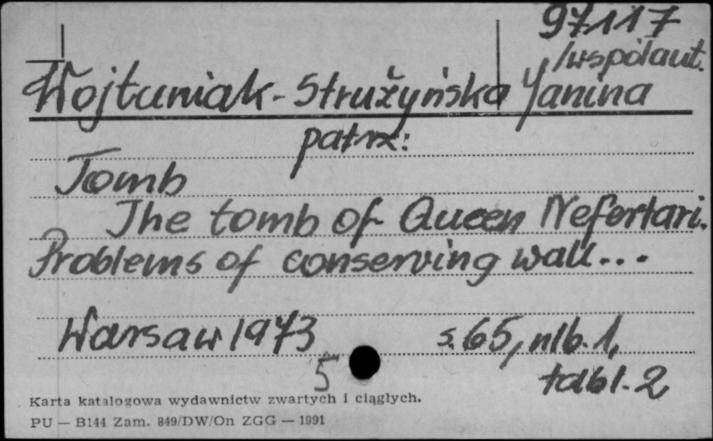 97117
/współaut.
Wojtuniak-Strużyńska Janina
patrz:
Tomb
The tomb of Queen Nefertari.
Problems of conserving wall...
Warsaw 1973 s. 65, nlb. 1,
tabl. 2
5
Karta katalogowa wydawnictw zwartych i ciągłych.
PU — B144 Zam. 849/DW/On ZGG — 1991